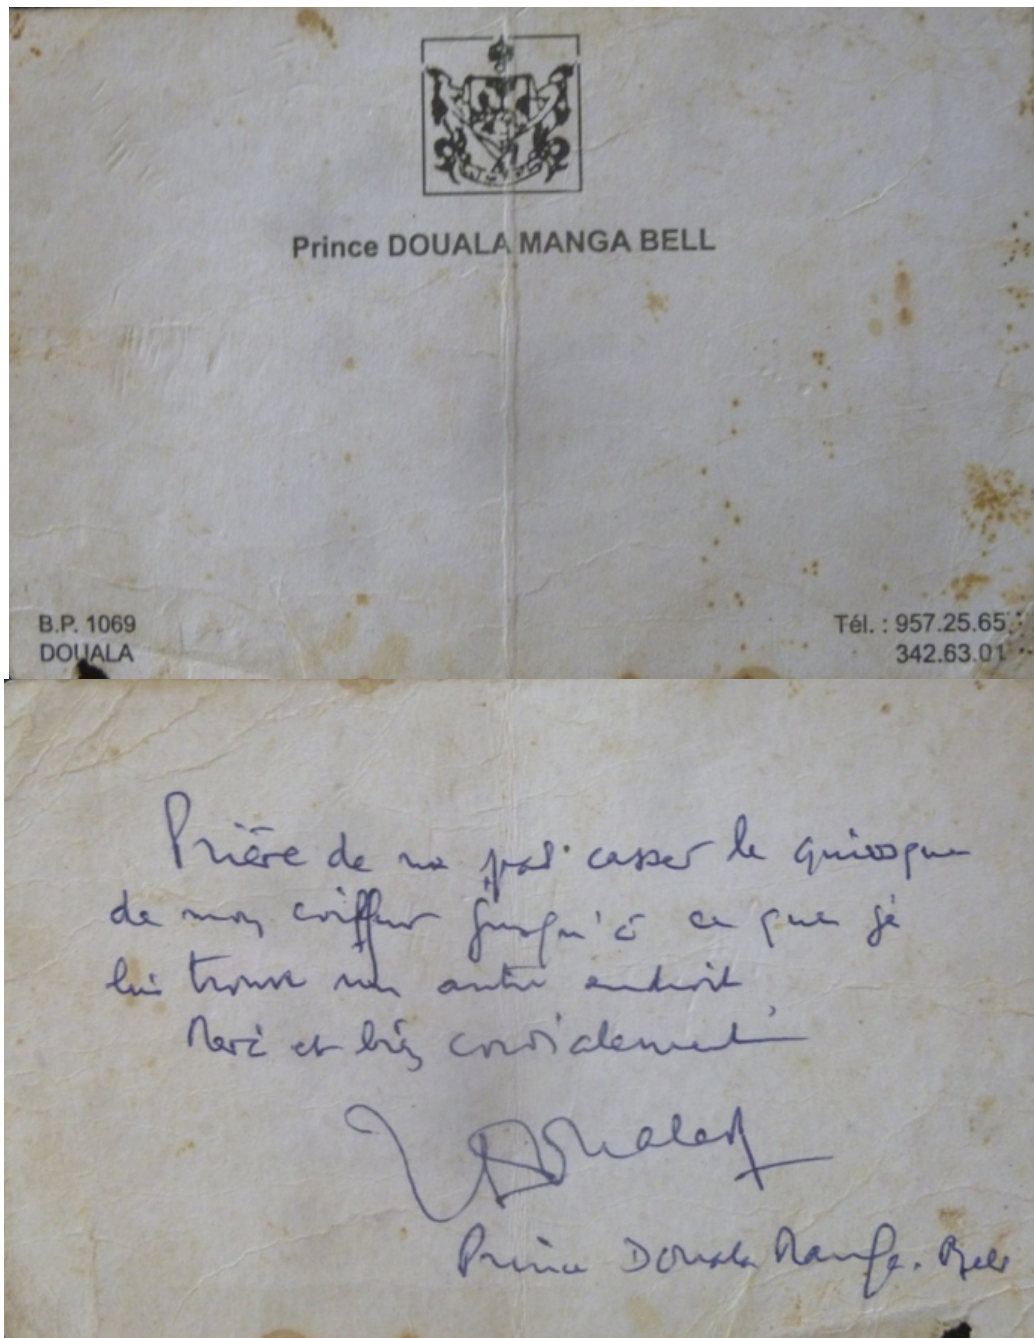 Prince DOUALA MANGA BELL
B.P. 1069
DOUALA
Tél. : 957.25.65
342.63.01
Prière de ne pas casser le quiosque
de mon coiffeur jusqu'à ce que je
lui trouve un autre endroit.
Merci et bien cordialement
Prince Douala Manga-Bell